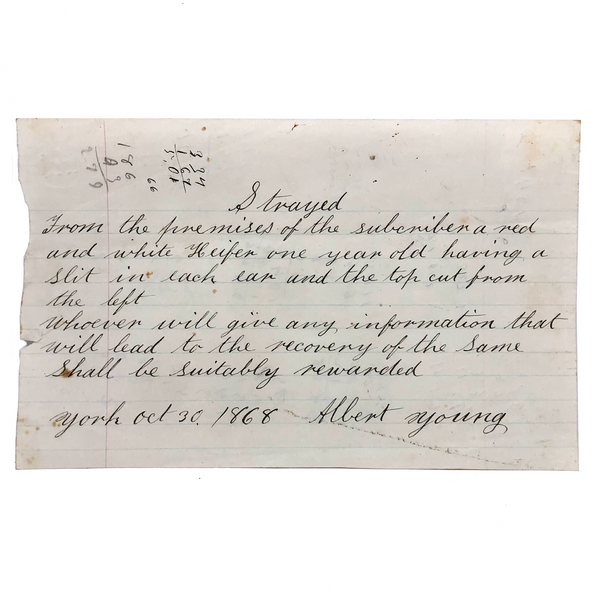 186
93
279
66
3 34
1 67
5,01
Strayed
From the premises of the subcriber a red
and white Heifer one year old having a
slit in each ear and the top cut from
the left
Whoever will give any information that
will lead to the recovery of the same
Shall be suitably rewarded
York Oct 30. 1868 Albert Young